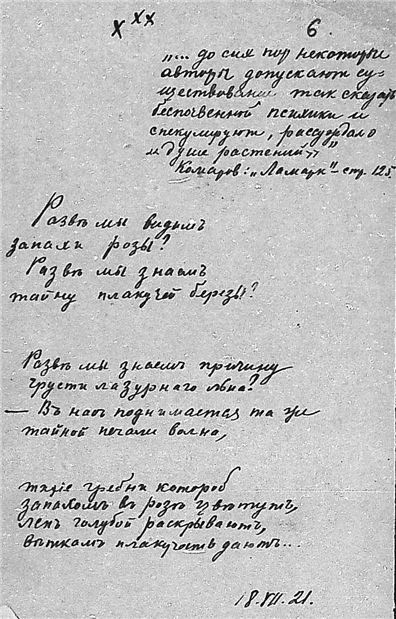 X XX
6.
"... до сих пор некоторые
авторы допускают су-
ществование так сказать
беспочвенной психики и
спекулируют, рассуждая о
"душе растений""
Комаров: "Ламарк" - стр. 125.
Разве мы видимъ
запахи розы?
Развѣ мы знаемъ
тайну плакучей березы?
Развѣ мы знаемъ причину
грусти лазурнаго льна?
— Въ насъ поднимается та же
тайной печали волна,
тихіе гребни которой
запахомъ въ розѣ цвѣтутъ,
ленъ голубой раскрываютъ,
вѣткамъ плакучесть даютъ...
18.VII.21.